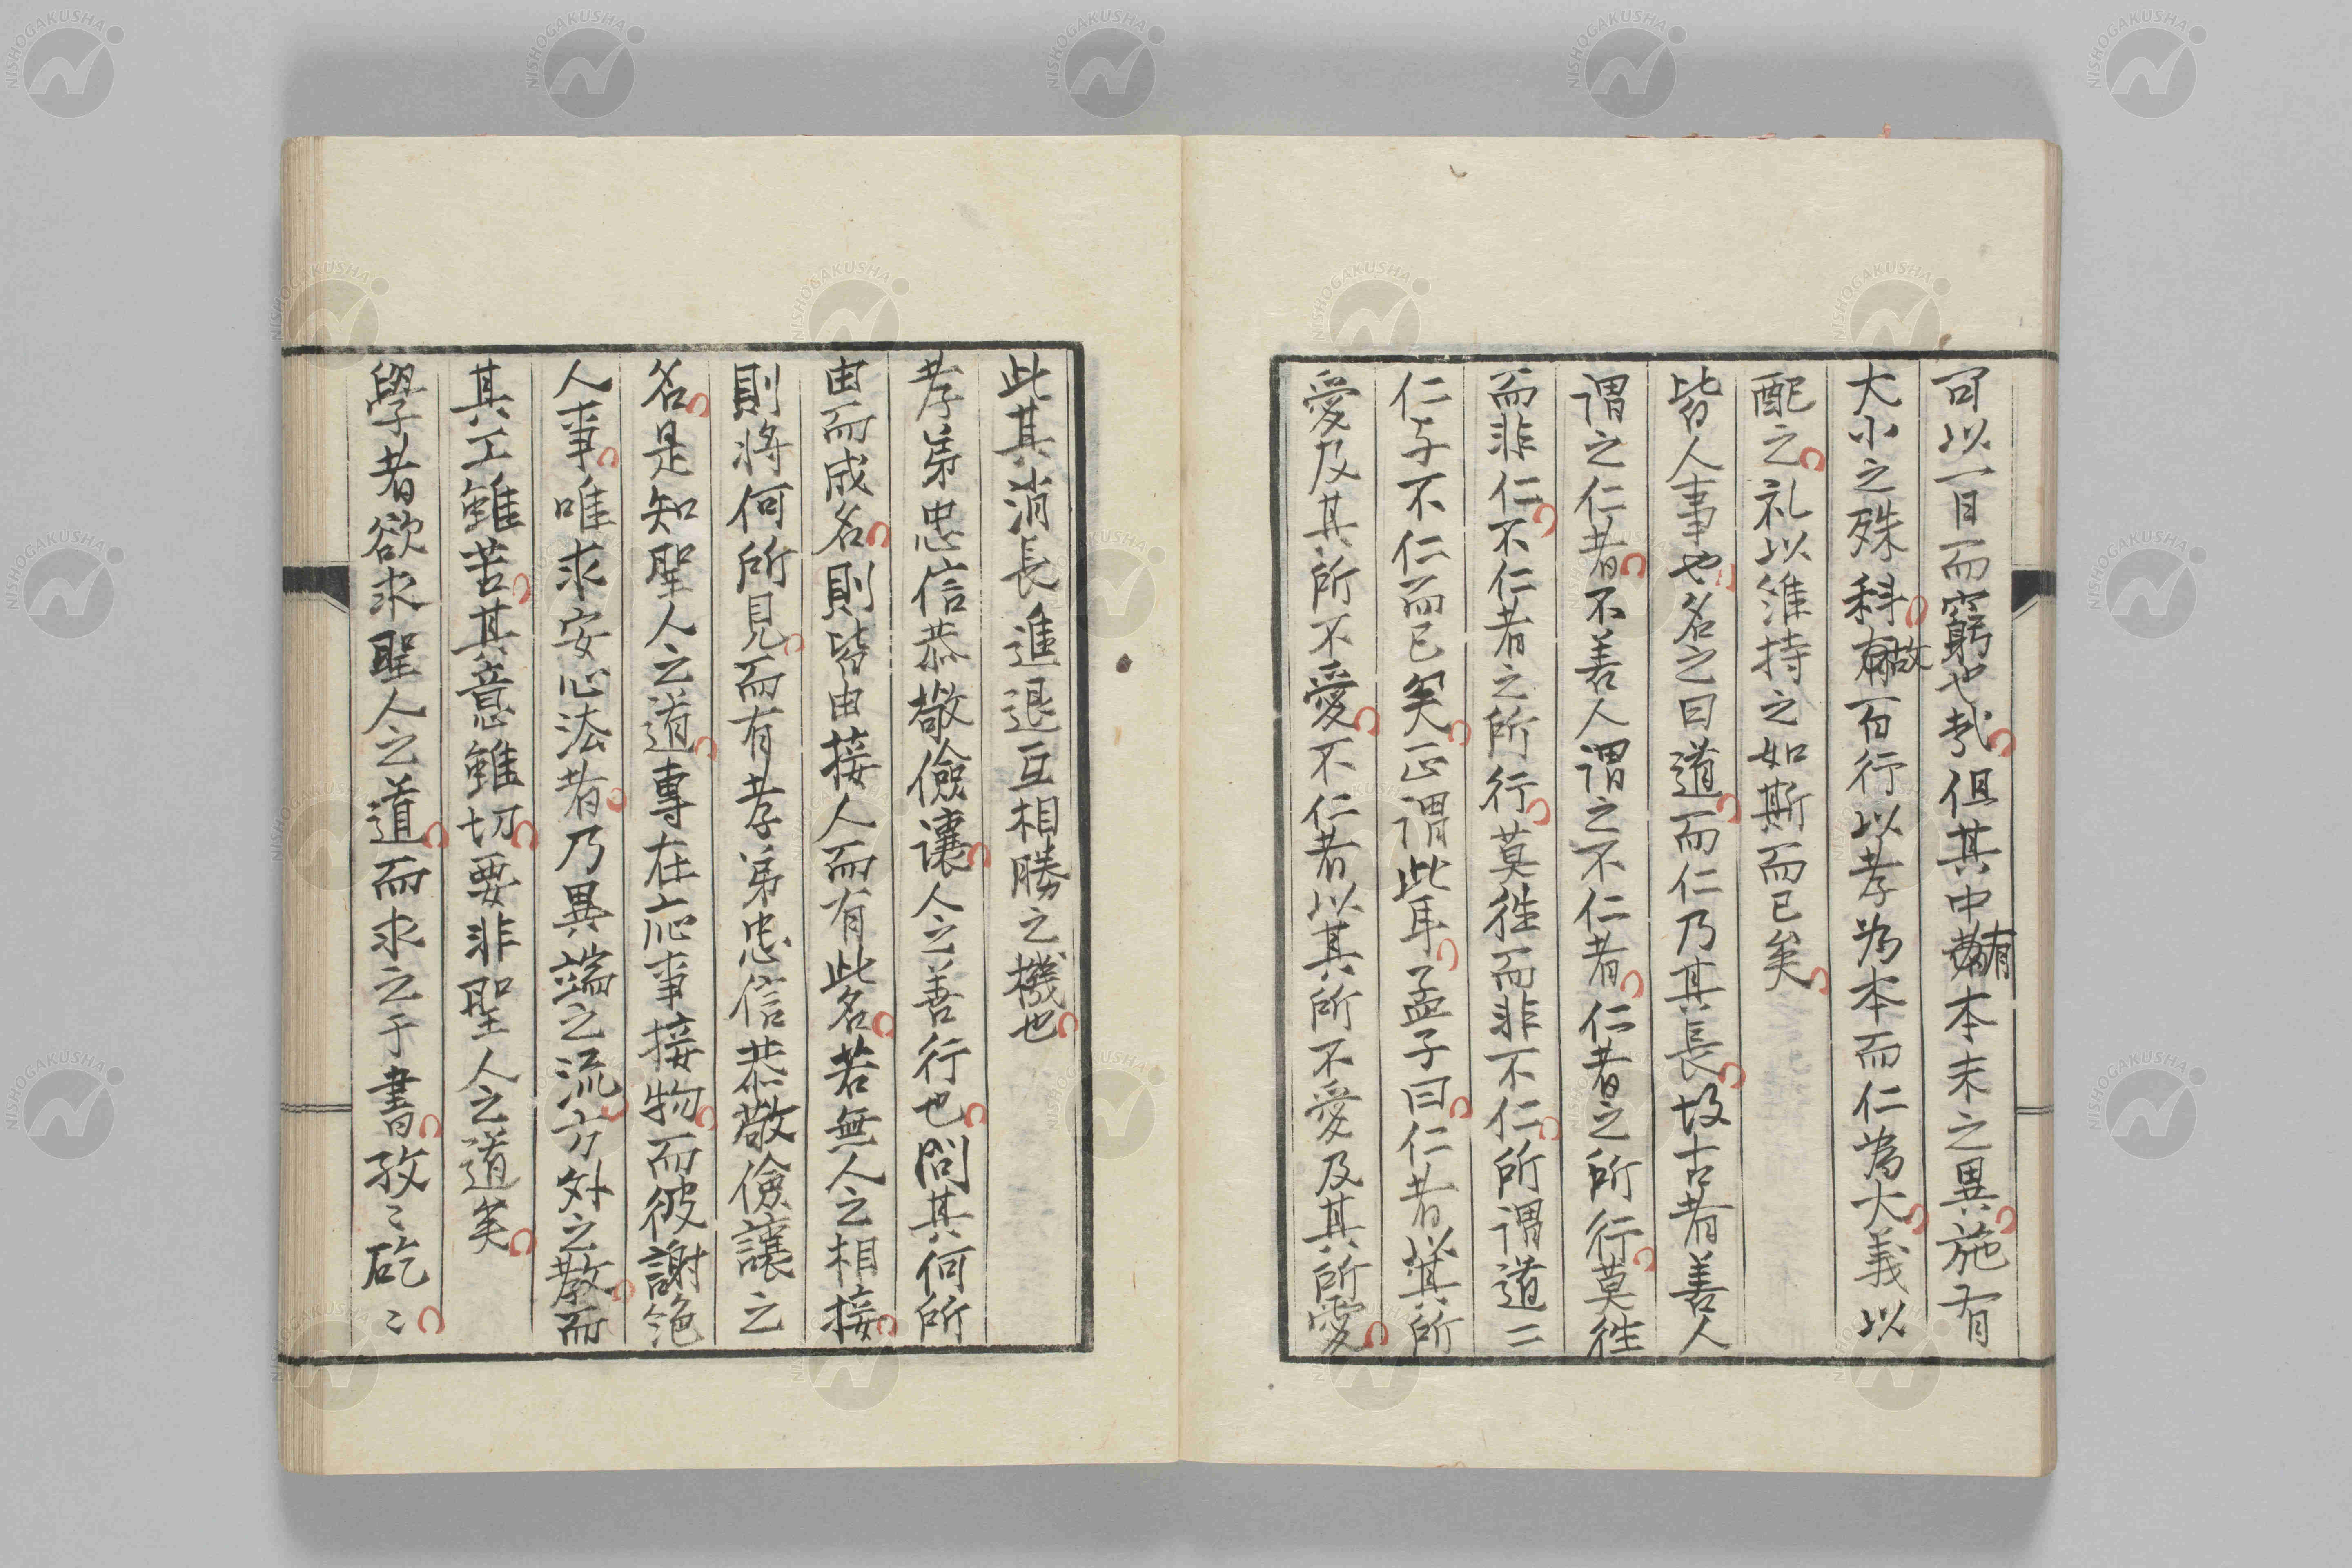 可以一目而窮也哉但其中有本末之異施有
大小之殊科故百行以孝為本而仁為大義以
配之礼以維持之如斯而已矣
皆人事也名之曰道而仁乃其長故古者善人
謂之仁者不善人謂之不仁者仁者之所行莫往
而非仁不仁者之所行莫往而非不仁所謂道二
仁与不仁而已矣正謂此耳孟子曰仁者以其所
愛及其所不愛不仁者以其所不愛及其所愛
此其消長進退互相勝之機也
孝弟忠信恭敬儉讓人之善行也問其何所
由而成名則皆由接人而有此名若無人之相接
則將何所見而有孝弟忠信恭敬儉讓之
名是知聖人之道專在応事接物而彼謝絶
人事唯求安心法者乃異端之流方外之教而
其工雖苦其意雖切要非聖人之道矣
學者欲求聖人之道而求之于書孜〻矻〻
NISHOGAKUSHA